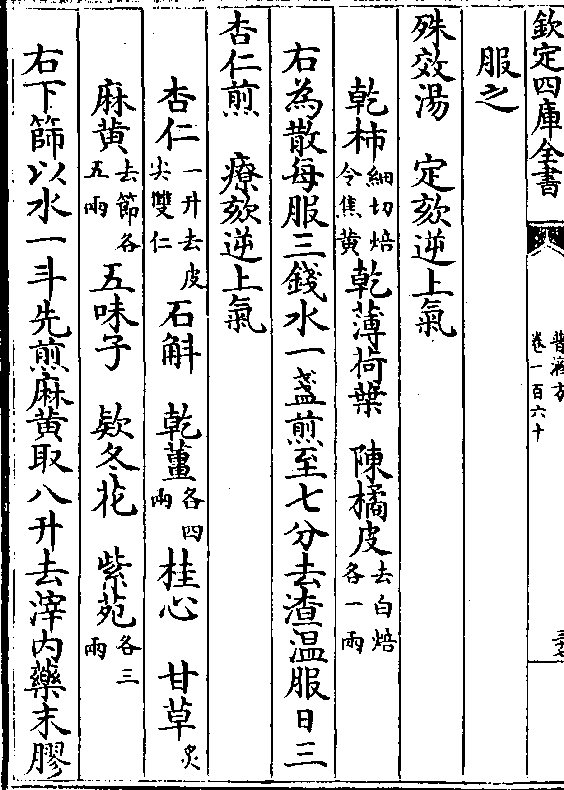 欽定四庫全書
普濟方
卷一百六十
服之
殊效湯 定欬逆上氣
乾柿細切焙令焦黄乾薄荷葉 陳橘皮去白焙各一兩
右為散每服三錢水一盞煎至七分去渣温服日三
杏仁煎 療欬逆上氣
杏仁一升去皮尖雙仁石斛 乾薑各四兩桂心 甘草炙
麻黄去節各五兩五味子 欵冬花 紫苑各三兩
右下篩以水一斗先煎麻黄取八升去滓内藥末膠